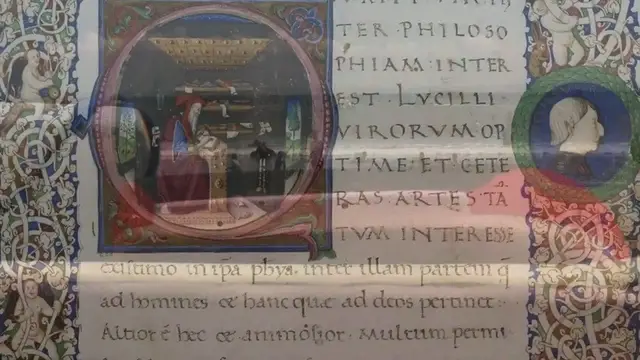 TER PHILOSO
PHIAM·INTER
EST·LVCILLI·
VIRORVM OP
TIME·ET·CETE
RAS·ARTES·TÃ
TVM INTERESSE
existimo in ip̃a phỹa· inter illam partem q̃
ad homines & hanc quae ad deos pertinet:
Altior ẽ hec & animosior· Multum permi